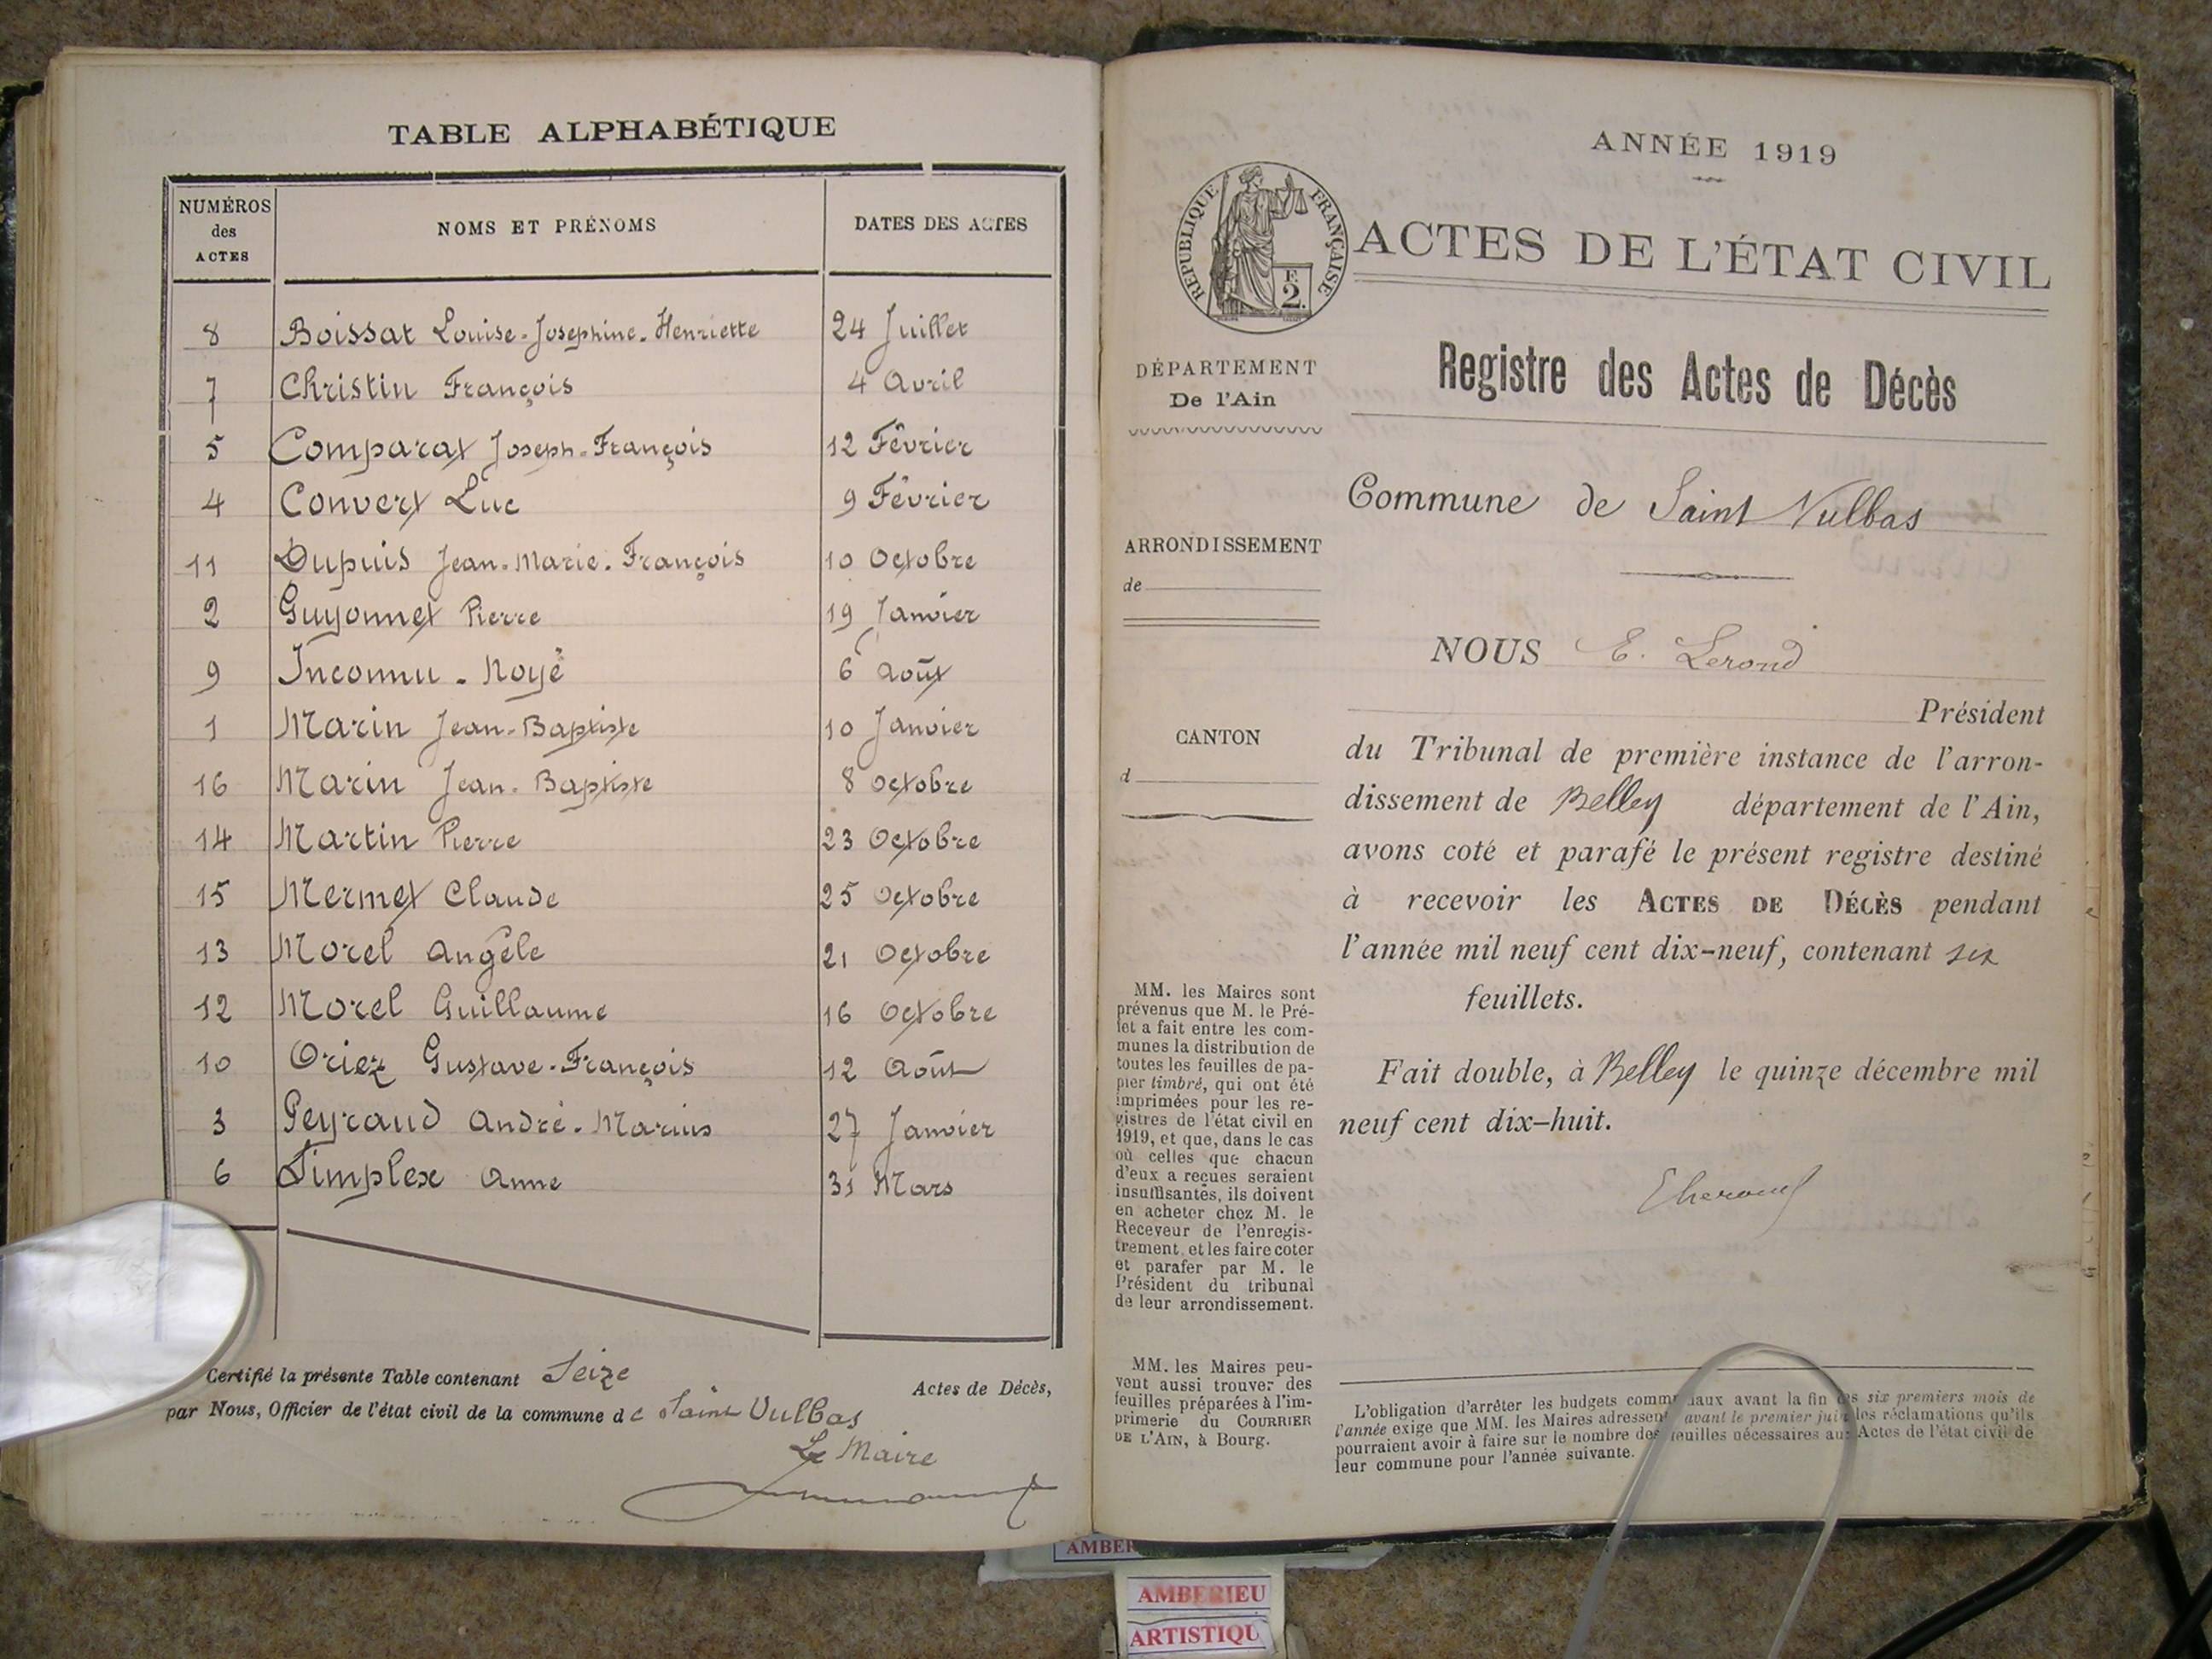 TABLE ALPHABÉTIQUE
NUMÉROS des ACTES NOMS ET PRÉNOMS DATES DES ACTES
8 Boissat Louise-Josephine-Henriette 24 Juillet
7 Christin François 4 Avril
5 Comparat Joseph-François 12 Février
4 Convert Luc 9 Février
11 Dupuis Jean-Marie-François 10 Octobre
2 Guyonnet Pierre 19 Janvier
9 Inconnu - Noyé 6 Août
1 Marin Jean-Baptiste 10 Janvier
16 Marin Jean-Baptiste 8 Octobre
14 Martin Pierre 23 Octobre
15 Mermet Claude 25 Octobre
13 Morel Angèle 21 Octobre
12 Morel Guillaume 16 Octobre
10 Oriez Gustave-François 12 Août
3 Peyraud André-Marius 27 Janvier
6 Simplex Anne 31 Mars
Certifié la présente Table contenant Seize Actes de Décès,
par Nous, Officier de l'état civil de la commune de Saint Vulbas
Le Maire
ANNÉE 1919
RÉPUBLIQUE FRANÇAISE
F.
2.
ACTES DE L'ÉTAT CIVIL
DÉPARTEMENT
De l'Ain
Registre des Actes de Décès
Commune de Saint Vulbas
ARRONDISSEMENT
de
NOUS E. Lerond
Président
CANTON
d
du Tribunal de première instance de l'arron-
dissement de Belley département de l'Ain,
avons coté et parafé le présent registre destiné
à recevoir les ACTES DE DÉCÈS pendant
l'année mil neuf cent dix-neuf, contenant six
feuillets.
Fait double, à Belley le quinze décembre mil
neuf cent dix-huit.
MM. les Maires sont
prévenus que M. le Pré-
fet a fait entre les com-
munes la distribution de
toutes les feuilles de pa-
pier timbré, qui ont été
imprimées pour les re-
gistres de l'état civil en
1919, et que, dans le cas
où celles que chacun
d'eux a reçues seraient
insuffisantes, ils doivent
en acheter chez M. le
Receveur de l'enregis-
trement, et les faire coter
et parafer par M. le
Président du tribunal
de leur arrondissement.
MM. les Maires peu-
vent aussi trouver des
feuilles préparées à l'im-
primerie du COURRIER
DE L'AIN, à Bourg.
L'obligation d'arrêter les budgets communaux avant la fin des six premiers mois de
l'année exige que MM. les Maires adressent avant le premier juin les réclamations qu'ils
pourraient avoir à faire sur le nombre des feuilles nécessaires aux Actes de l'état civil de
leur commune pour l'année suivante.
AMBER
AMBERIEU
ARTISTIQU